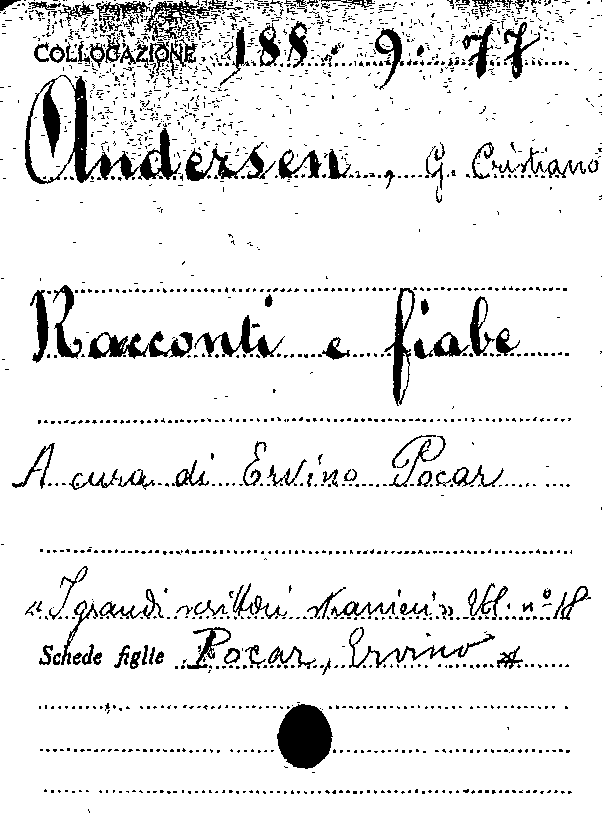 COLLOCAZIONE 188. 9. 77
Andersen, G. Cristiano
Racconti e fiabe
A cura di Ervino Pocar
« I grandi scrittori stranieri » Vol. n° 18
Schede figlie Pocar, Ervino *